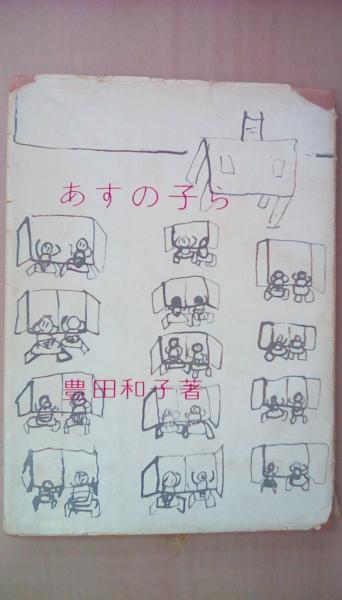 あすの子ら
豊田和子著